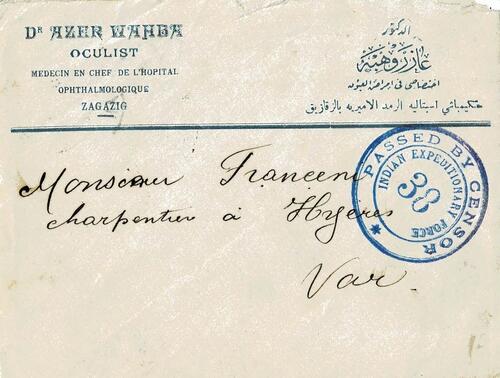 Dr AZER WAHBA
OCULIST
MEDECIN EN CHEF DE L'HOPITAL
OPHTHALMOLOGIQUE
ZAGAZIG
الدكتور
عازر وهبة
اختصاصى فى امراض العيون
حكيمباشي اسبتاليه الرمد الاميريه بالزقازيق
PASSED BY CENSOR
INDIAN EXPEDITIONARY FORCE
38
Monsieur
charpentier à Hyères
Var.